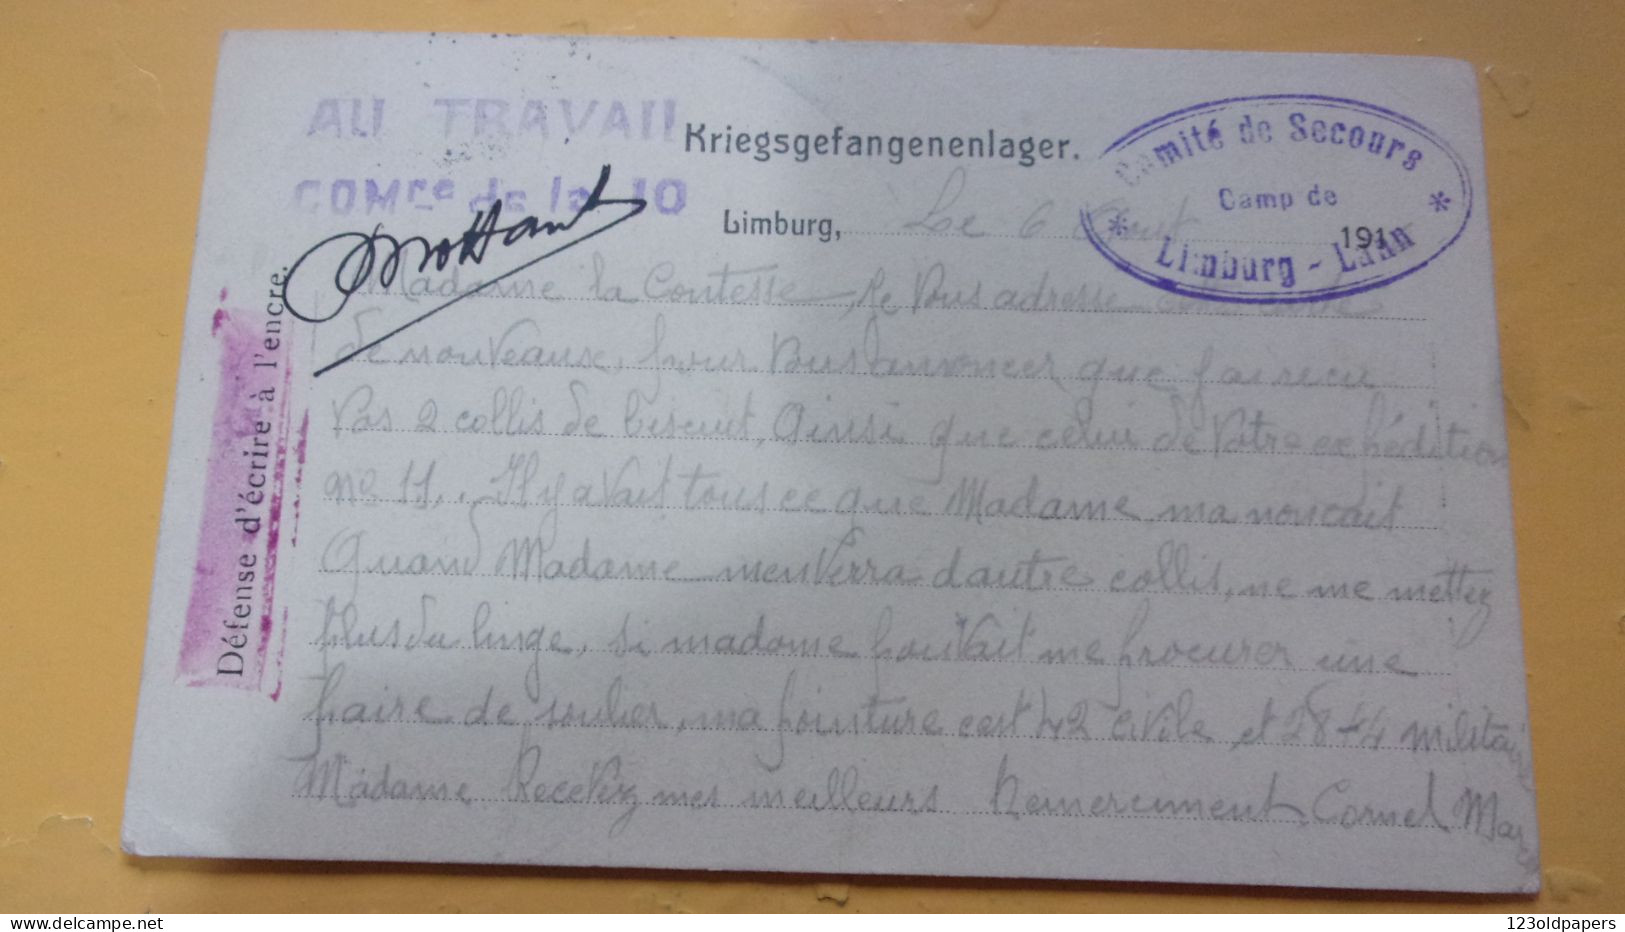 AU TRAVAIL
COMre de la 10
Kriegsgefangenenlager.
Comité de Secours
Camp de
Limburg - Lahn
Limburg, Le 6 Aout 191
Défense d'écrire à l'encre.
Madame la Contesse, Je Vous adresse cette carte
de nouveaux, pour Vous annoncer que j'ai recu
Vos 2 collis de biscuit, Ainsi que celui de Votre expédition
No 11. Il y avait tous ce que Madame, ma noncait
Quand Madame menverra d'autre collis, ne me mettez
plus du linge, si madame pouvait me procurer une
paire de soulier, ma pointure cest 42 civile, et 28+4 militaire
Madame Recevez mes meilleurs Remerciment Cornel Mar
123oldpapers